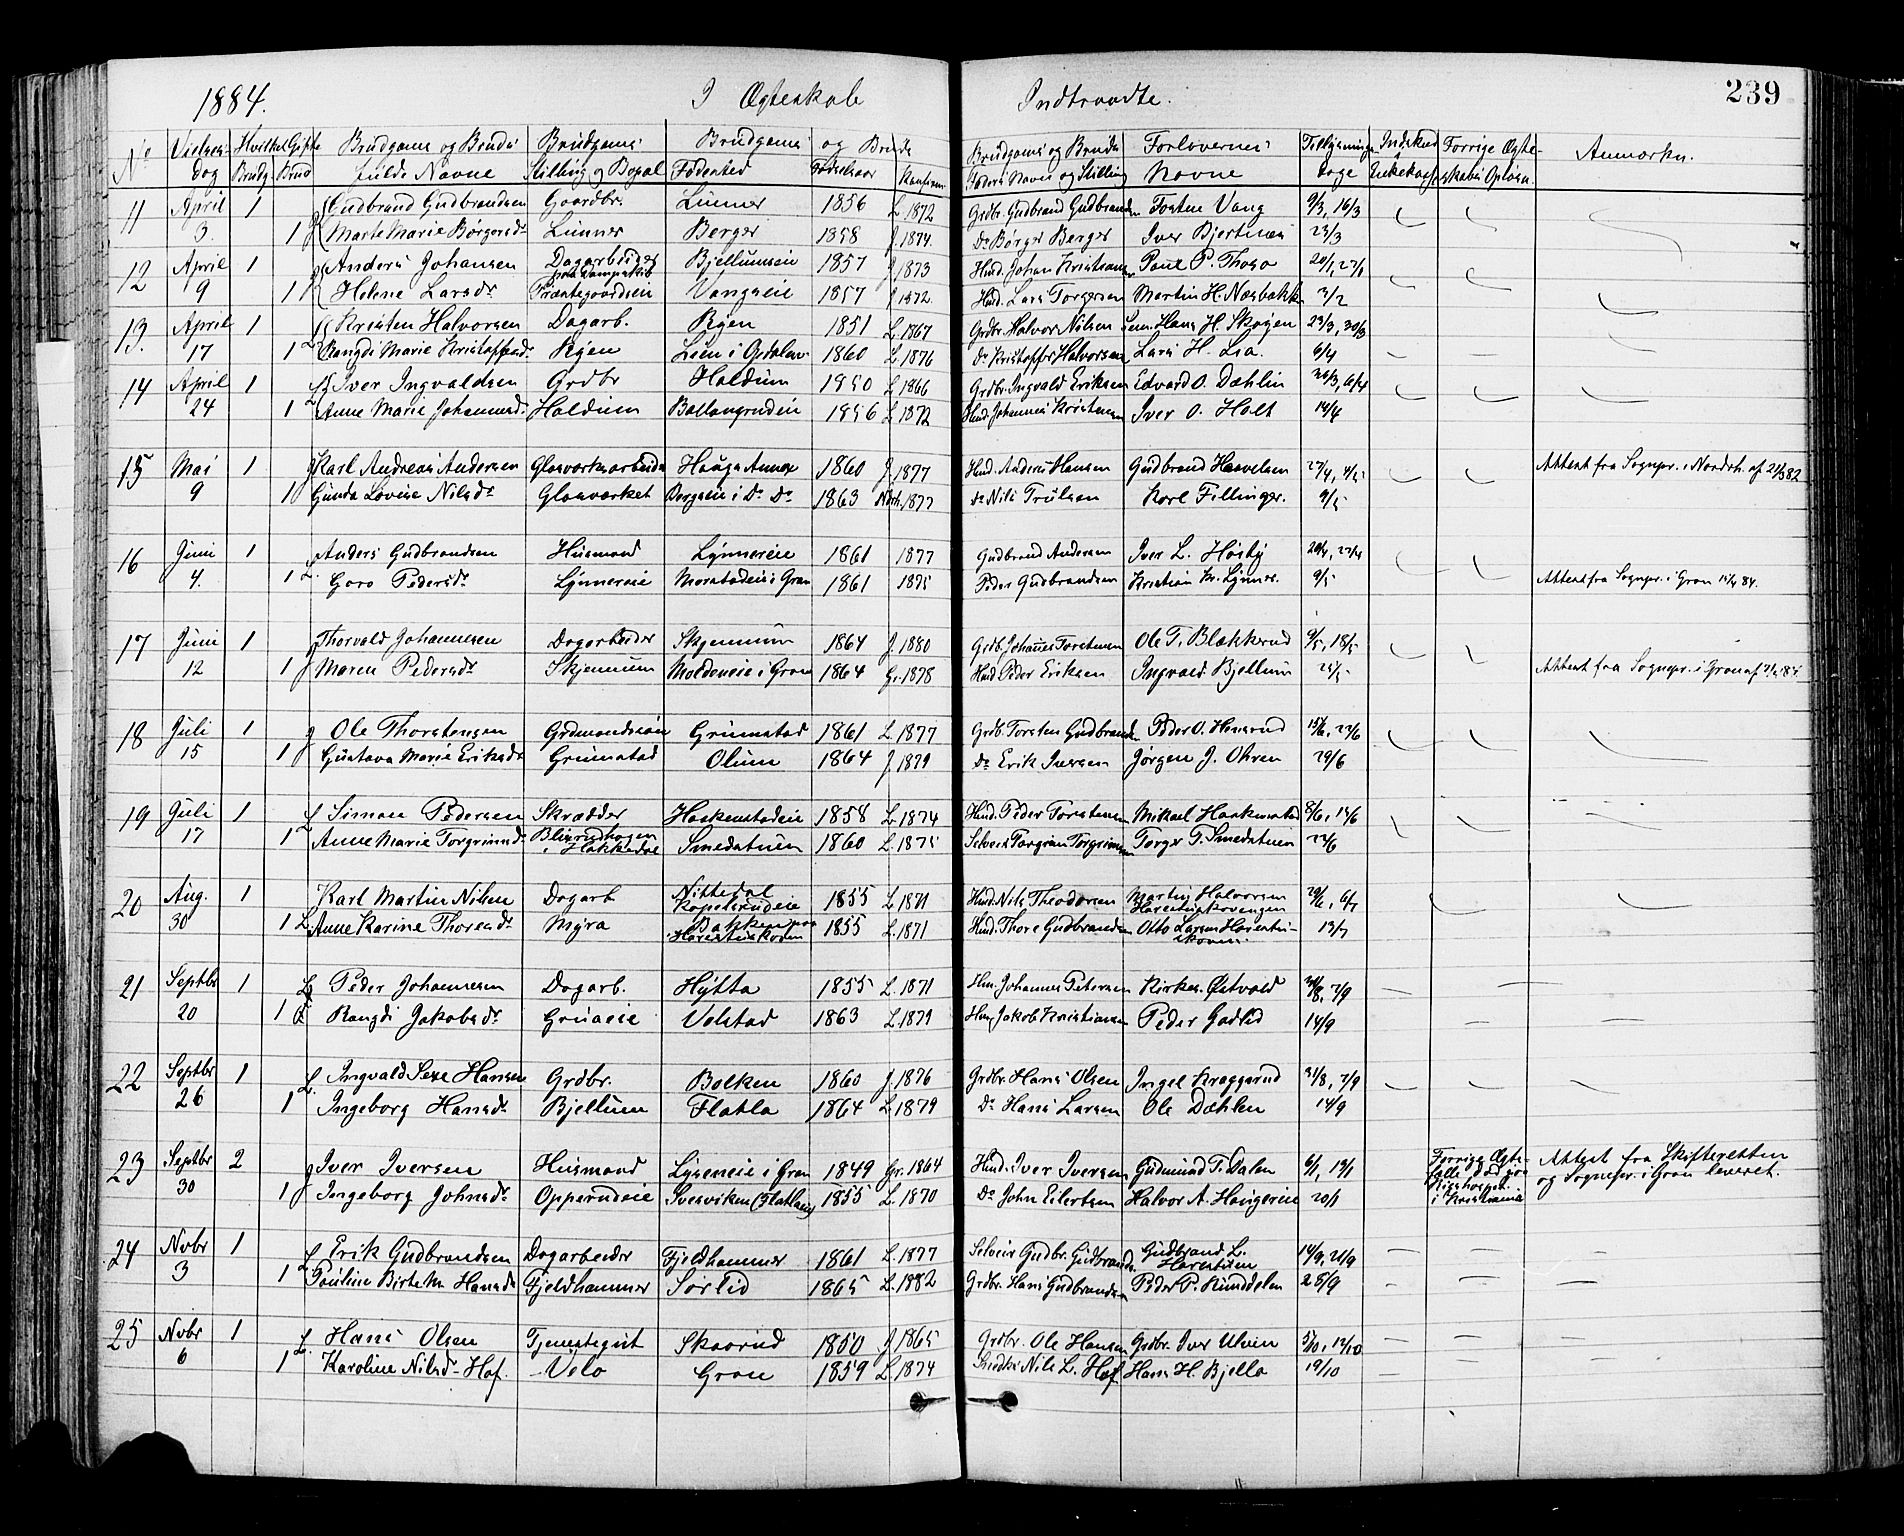 239
1884. I Ægteskab Indtraadte.
No Vielses- Hvilket Gifte Brudgoms og Bruds Brudgoms Brudgoms og Bruds Brudgoms og Bruds Forlovernes Tillysnings- Indskud Forrige Ægte- Anmærkn.
dag Brudg Brud fulde Navne Stilling og Bopæl Fødested Fødselsaar Konfirm. Faders Navn og Stilling Navne dage Enkekasse skabs Opløsn.
11 April 1 Gudbrand Gudbrandsen Gaardbr. Lunner 1856 L. 1872 Grdbr. Gudbrand Gudbrandsen Torsten Vang 9/3, 16/3
3. 1 Marte Marie Børgersdr Lunner Berger 1858 J. 1874. Do Børger Berger Iver Bjertnæs 23/3
12 April 1 Anders Johansen Dagarbeider Bjellumseie 1857 J. 1873 Husm. Johan Kristiansen Poul P. Thoso 20/1, 27/1
9 1 Helene Larsdr Præstegaardseie Vangseie 1857 J. 1872. Husm. Lars Torgersen Martin H. Næsbakk 3/2
13. April 1 Kristen Halvorsen Dagarb. Ryen 1851 L. 1867 Grdbr. Halvor Nilsen Hans H. Skøyen 23/3, 30/3
17 1 Rangdi Marie Kristoffersdr Ryen 1860 L. 1876 Do Kristoffer Halvorsen Lars H. Lia. 6/4
14 April 1 Iver Ingvaldsen Grdbr Haldum 1850 L. 1866 Grdbr. Ingvald Eriksen Edvard O. Dæhlin 30/3, 6/4
24 1 Anne Marie Johannesdr Haldum Ballangrudeie 1856 L. 1872 Husm. Johannes Kristensen Iver O. Holt 14/4
15 Mai 1 Karl Andreas Andersen Glasværksarbeider Hauge Annex 1860 J. 1877 Husm. Anders Hansen Gudbrand Haavelsen 27/4, 4/5 Attest fra Sognepr. i Nordreh. af 21/5 82
9 1 Gunda Lovise Nilsdr Glasværket Borgseie i Do Do 1863 Norh. 1877 Do Nils Trulsen Karl Fillinger. 9/5
16 Juni 1 Anders Gudbrandsen Husmand Lynnereie 1861 1877 Gudbrand Andersen Iver L. Høiby 20/4, 27/4
4. 1 Goro Pedersdr Lynnereie Morstadeie i Gran 1861 1875 Peder Gudbrandsen Kristian Kr. Lynner. 9/5 Attest fra Sognepr. i Gran 15/4 84.
17 Juni 1 Thorvald Johannesen Dagarbeider Skjerveum 1864 J. 1880 Grdb. Johannes Torstensen Ole T. Blækkerud 9/5, 18/5
12 1 Maren Pedersdr Skjerveum Moldeneie i Gran 1864 Gr. 1878 Husm. Peder Eriksen Ingvald Bjellum 25/5 Attest fra Sognepr. i Gran af
18 Juli 1 Ole Thorstensen Grdmandssøn Grimstad 1861 L. 1877 Grdb. Torsten Gudbrandsen Peder O. Hensrud 15/6, 22/6
15 1 Gustava Marie Eriksdr Grimstad Olum 1864 J. 1879 Do Erik Iversen Jørgen J. Ohren 29/6
19 Juli 1 Simon Pedersen Skrædder Haakenstadeie 1858 L. 1874 Husm. Peder Torstensen Mikael Haakenstad 8/6, 15/6
17 1 Anne Marie Torgrimsdr Blirudhagen i Hakkedal Smedstuen 1860 L. 1875 Selveier Torgrim Torgrimsen Torger T. Smedstuen 22/6
20 Aug. 1 Karl Martin Nilsen Dagarb Nittedal Kapelsrudeie 1855 L. 1871 Husm. Nils Theodorsen Martin Halvorsen Harestuskovengen 29/6, 6/7
30 1 Anne Karine Thorsdr Myra Bakken paa Harestuskoven 1855 L. 1871 Husm. Thore Gudbrandsen Otto Larsen Harestuskoven 13/7
21 Septbr 1 Peder Johannesen Dagarb. Hytta 1855 L. 1871 Hm. Johannes Petersen Kirkes. Østvold 31/8, 7/9
20 1 Rangdi Jakobsdr Gruaeie Volstad 1863 L. 1879 Hm. Jakob Kristiansen Peder Gadlid 14/9
22 Septbr 1 Ingvald Sexe Hansen Grdbr. Bolken 1860 J. 1876 Grdbr. Hans Olsen Ingel Kraggerud 31/8, 7/9
26 1 Ingeborg Hansdr Bjellum Flatla 1864 L. 1879 Do Hans Larsen Ole Dæhlen 14/9
23 Septbr 2 Iver Iversen Husmand Lyseneie i Gran 1849 Gr. 1864 Husm. Iver Iversen Gudmund T. Dalen 6/1, 13/1 Forrige Ægtefælle død paa Rigshospit. i Kristiania Attest fra Skifteretten og Sognepr. i Gran leveret.
30 1 Ingeborg Johnsdr Opperudeie Svesviken (Flatlaeie) 1855 L. 1870 Do John Eilertsen Halvor A. Haugereie 20/1
24 Novbr 1 Erik Gudbrandsen Dagarbeider Fjeldhammer 1861 L. 1877 Selveier Gudbr. Gudbrandsen Gudbrand L. Harestuen 14/9, 21/9
3 1 Pauline Birte Hansdr Fjeldhammer Sørlid 1865 L. 1882 Grdbr. Hans Gudbrandsen Peder P. Kunddalen 28/9
25 Novbr 1 Hans Olsen Tjenestegut Skaarud 1850 J. 1865 Grdbr. Ole Hansen Grdbr. Iver Ulven 5/10, 12/10
6 1 Karoline Nilsdr Hof. Velo Gran 1859 L. 1874 Nils L. Hof. Hans H. Bjella 19/10